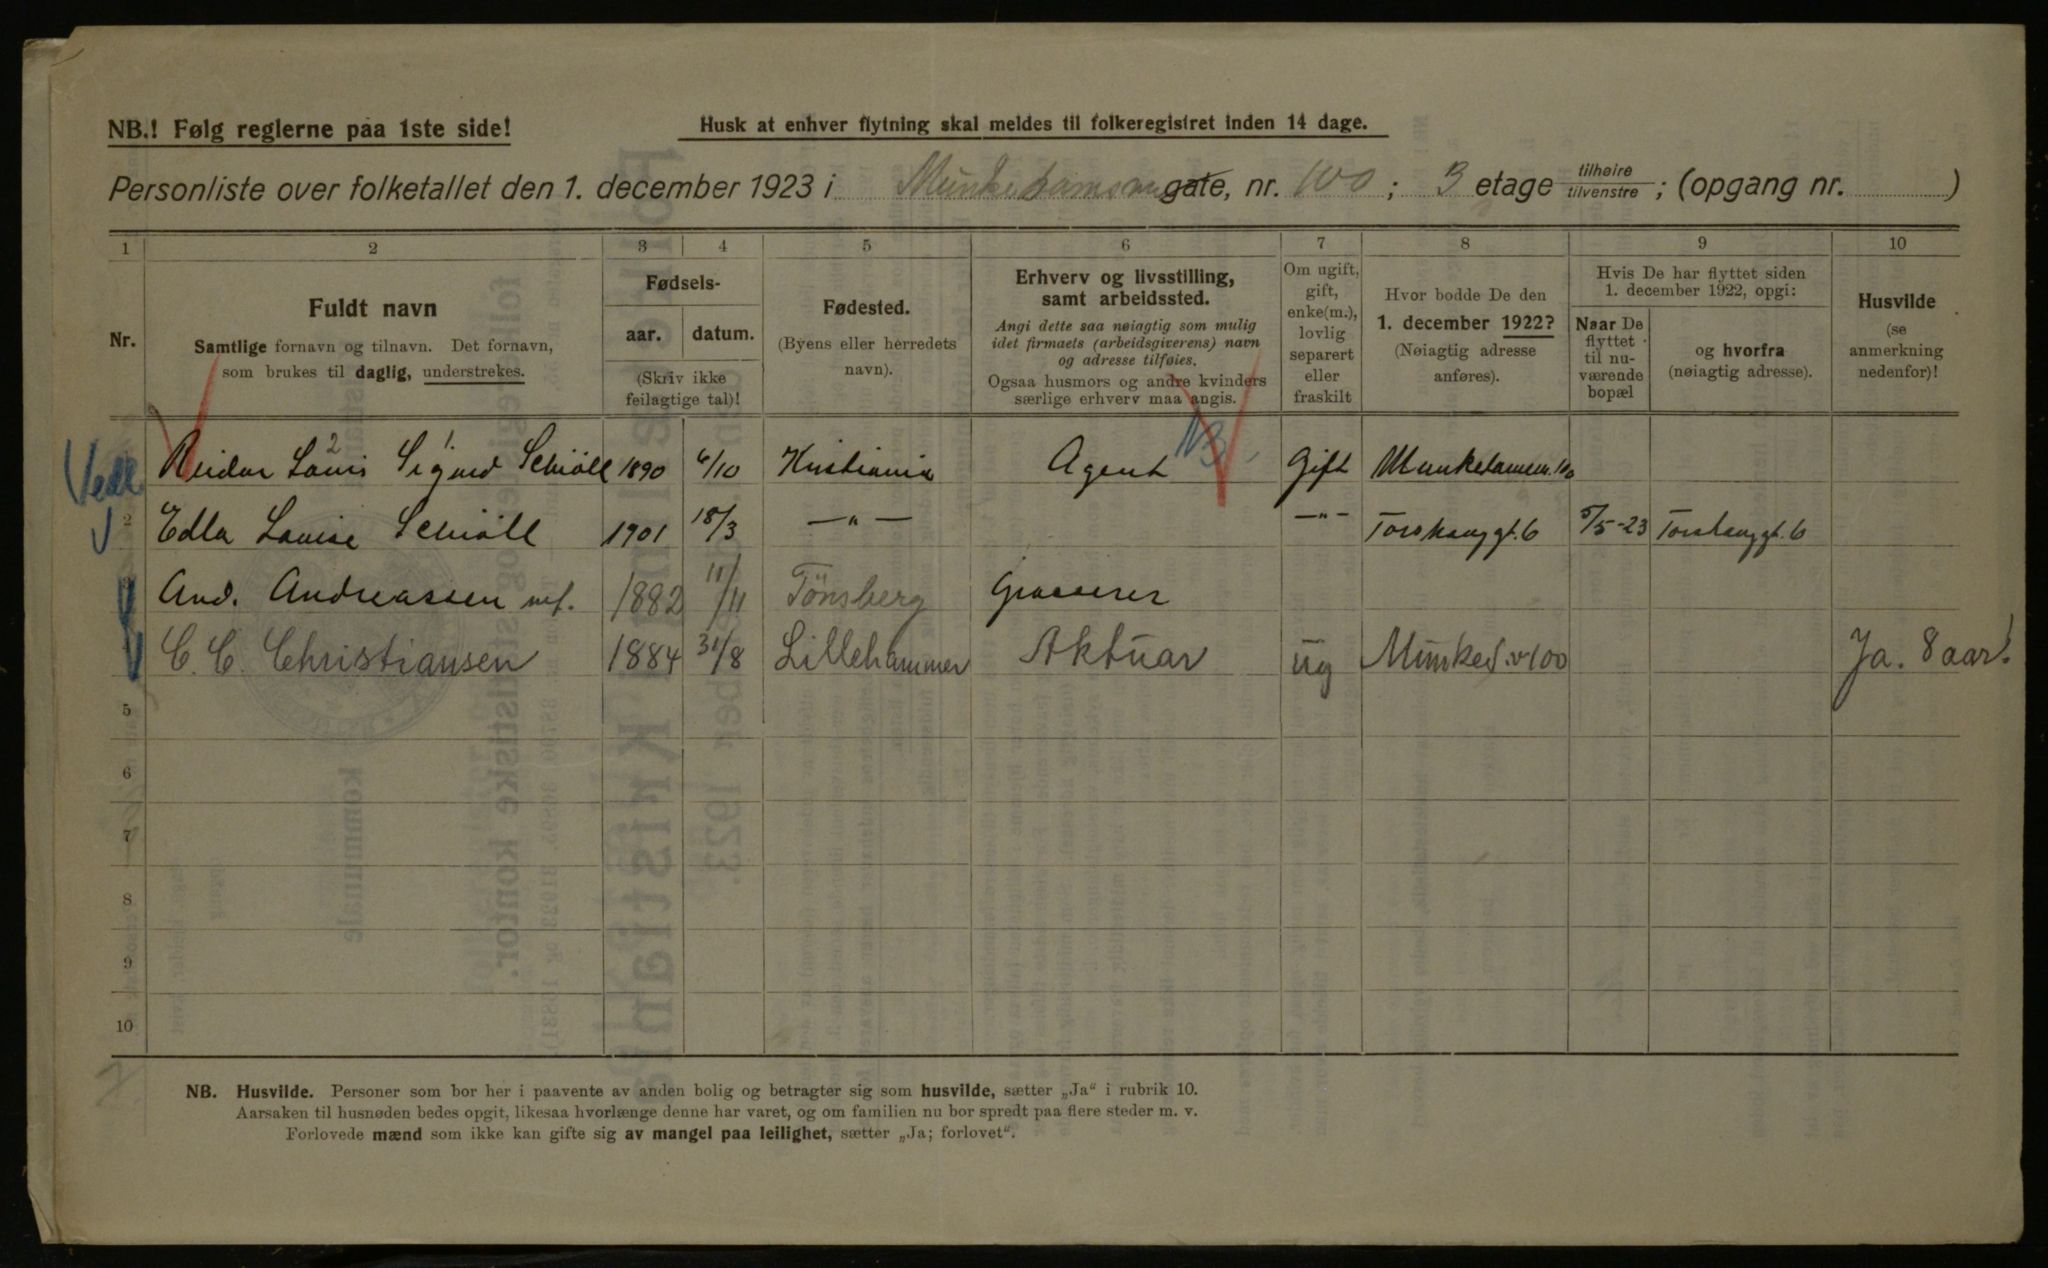 NB.! Følg reglerne paa 1ste side!
Husk at enhver flytning skal meldes til folkeregistret inden 14 dage.
Personliste over folketallet den 1. december 1923 i Munkedamsv gate, nr. 100 ; 3 etage tilhøire tilvenstre ; (opgang nr. )
1 2 3 4 5 6 7 8 9 10
Nr.
Fuldt navn
Samtlige fornavn og tilnavn. Det fornavn,
som brukes til daglig, understrekes.
Fødsels-
aar. datum.
(Skriv ikke
feilagtige tal)!
Fødested.
(Byens eller herredets
navn).
Erhverv og livsstilling,
samt arbeidssted.
Angi dette saa nøiagtig som mulig
idet firmaets (arbeidsgiverens) navn
og adresse tilføies.
Ogsaa husmors og andre kvinders
særlige erhverv maa angis.
Om ugift,
gift,
enke(m.),
lovlig
separert
eller
fraskilt
Hvor bodde De den
1. december 1922?
(Nøiagtig adresse
anføres).
Hvis De har flyttet siden
1. december 1922, opgi:
Naar De
flyttet
til nu-
værende
bopæl
og hvorfra
(nøiagtig adresse).
Husvilde
(se
anmerkning
nedenfor)!
NB
Reidar Louis 2 Sigurd 1 Schiöll 1890 6/10 Kristiania Agent Gift Munkedamsv. 100
2 Edla Louise Schiöll 1901 18/3 —"— —"— Torshauggt. 6 5/5-23 Torshauggt. 6
3 And. Andreassen 1882 11/11 Tönsberg Grosserer
C. C. Christiansen 1884 31/8 Lillehammer Aktuar ug Munked.v 100 Ja. 8 aar!
5
6
7
8
9
10
NB. Husvilde. Personer som bor her i paavente av anden bolig og betragter sig som husvilde, sætter „Ja“ i rubrik 10.
Aarsaken til husnøden bedes opgit, likesaa hvorlænge denne har varet, og om familien nu bor spredt paa flere steder m. v.
Forlovede mænd som ikke kan gifte sig av mangel paa leilighet, sætter „Ja; forlovet“.